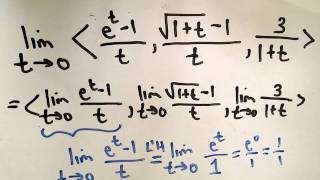 lim t→0 < (e^t-1)/t , (√(1+t) -1)/t , 3/(1+t) >
= < lim t→0 (e^t-1)/t , lim t→0 (√(1+t) -1)/t , lim t→0 3/(1+t) >
lim t→0 (e^t-1)/t L'H = lim t→0 e^t/1 = e^0/1 = 1/1